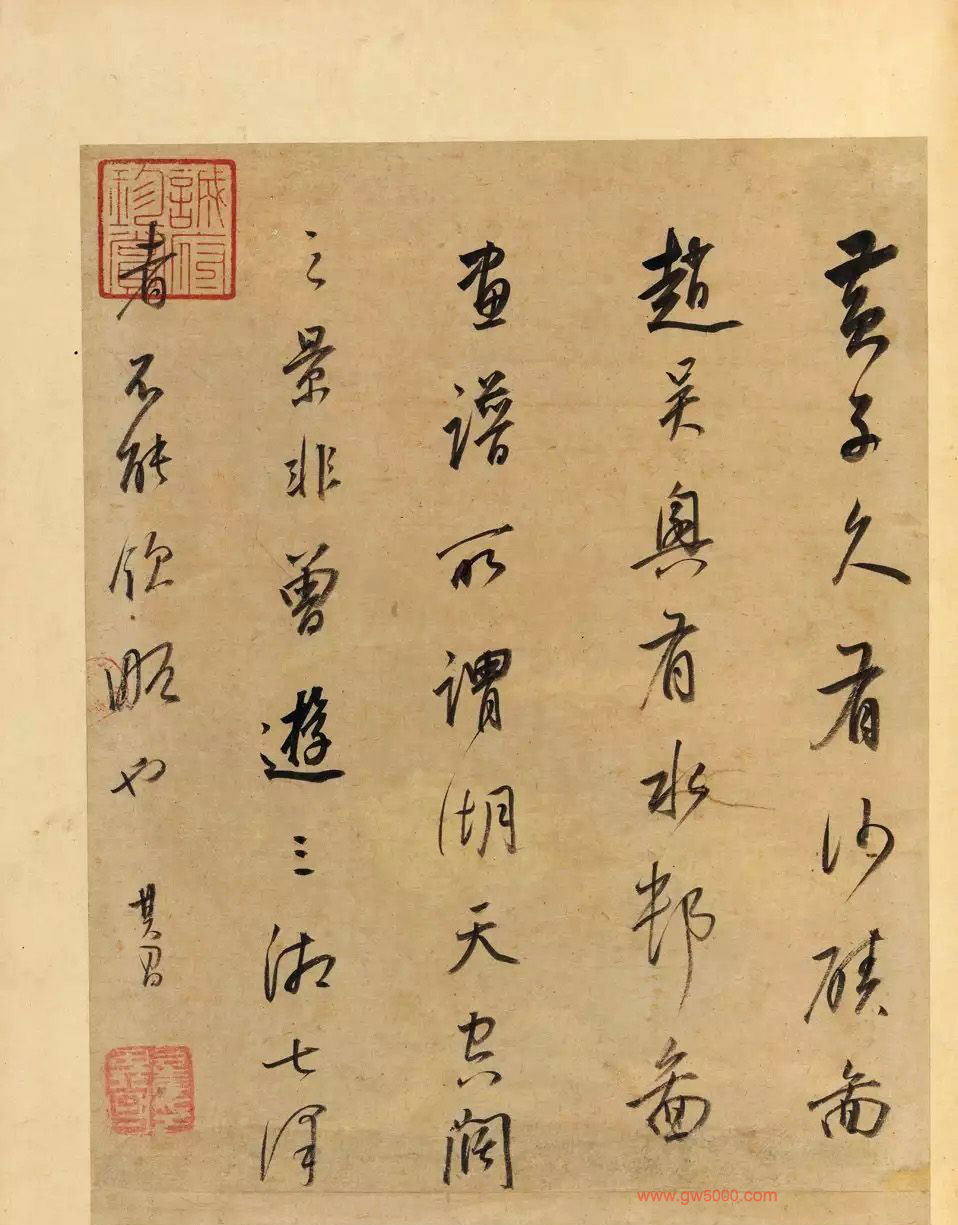 黃子久有沙磧圖
趙吳興有水邨圖
畫譜所謂湖天空闊
之景非曾遊三湘七澤
者不能領略也 其昌
www.gw5000.com